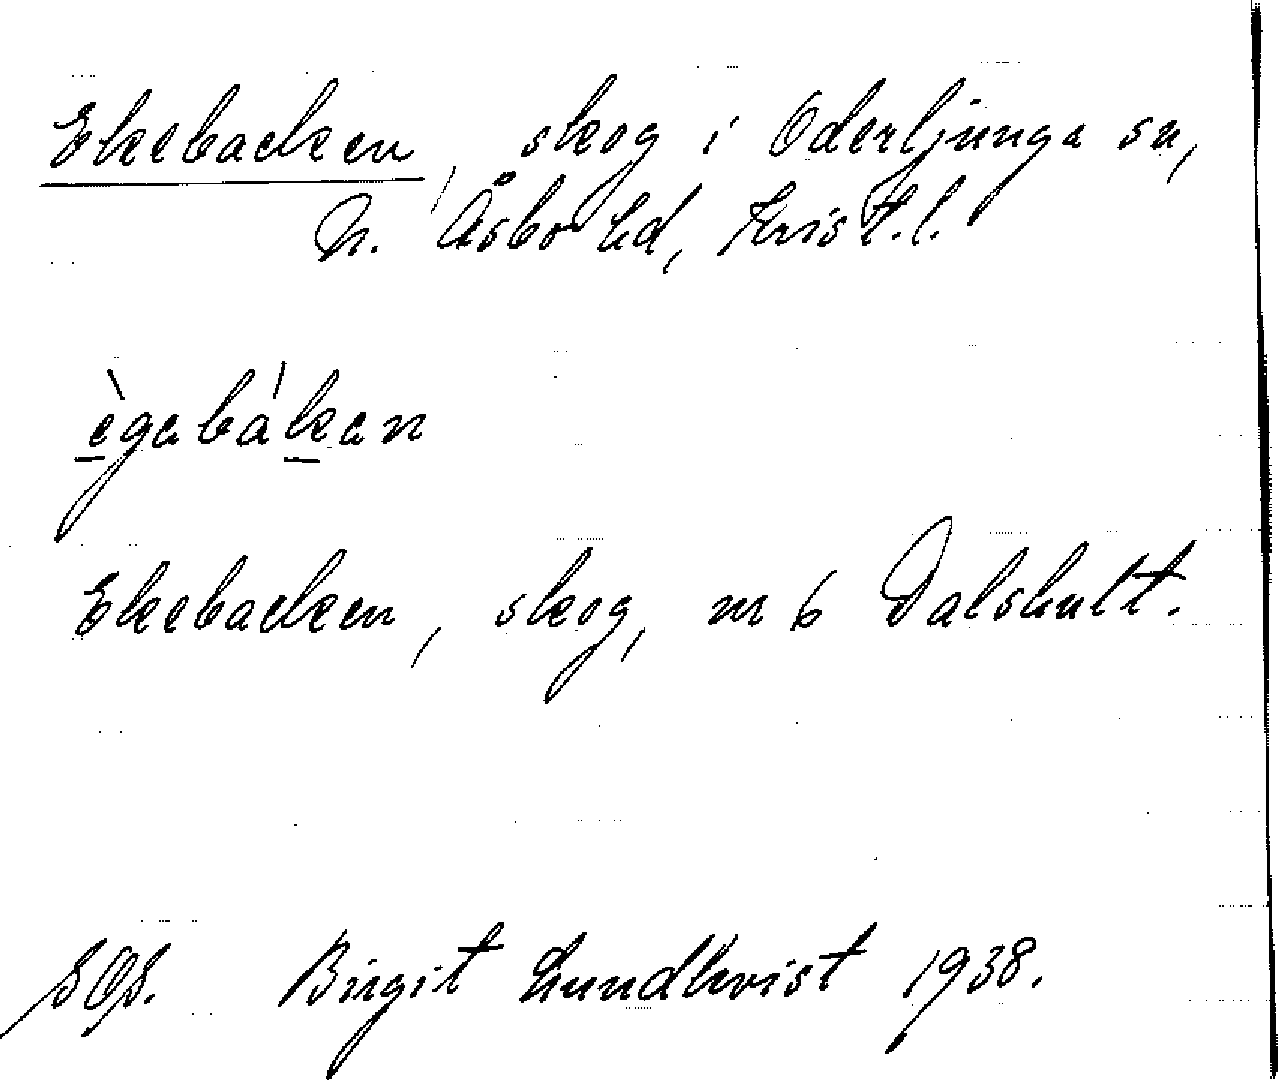 Ekebacken, skog i Oderljunga sn,
N. Åsbo hd, Krist.l.
ègabákan
Ekebacken, skog, nr 6 Dalshult.
Birgit Lundkvist 1938.